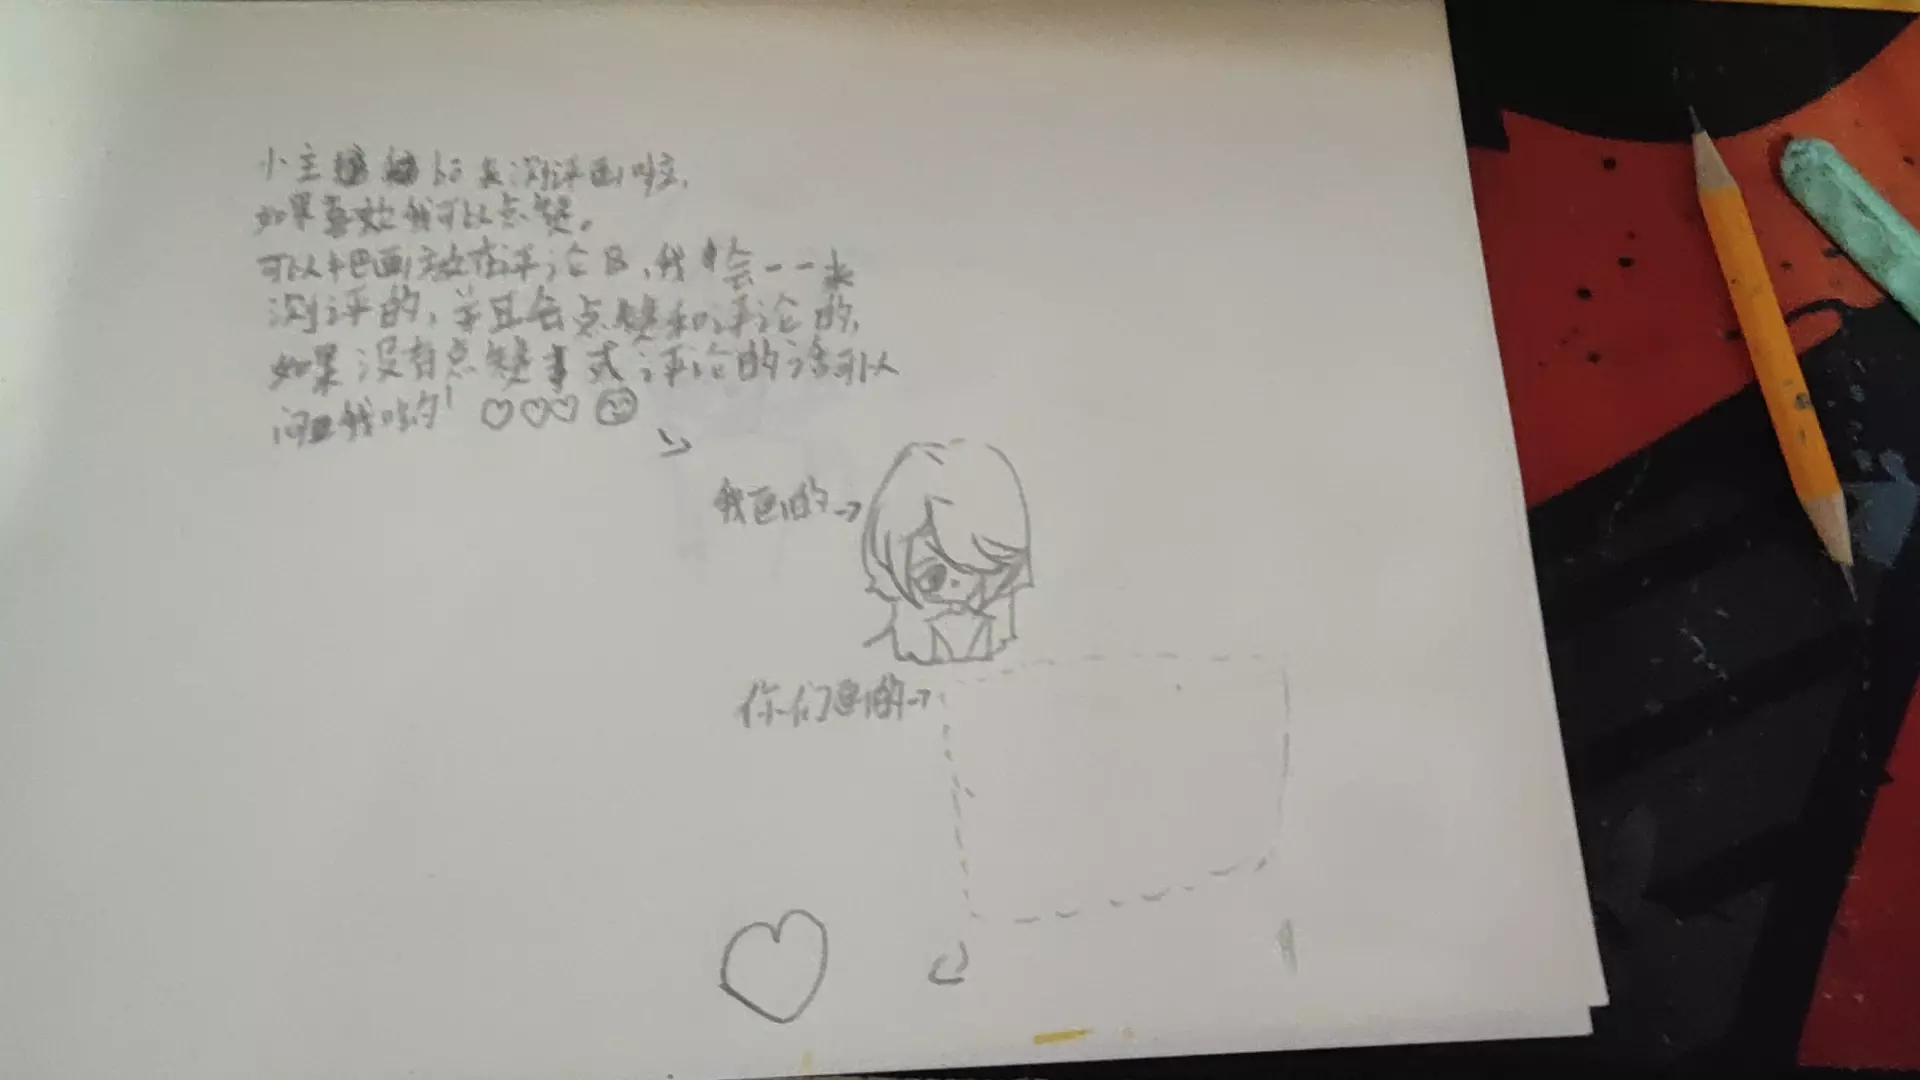 小主 来测评画啦,
如果喜欢我可以点赞。
可以把画放在评论区,我会一一来
测评的,并且会点赞和评论的,
如果没有点赞 式评论的话可以
问我哈的!
我画的→
你们画的→